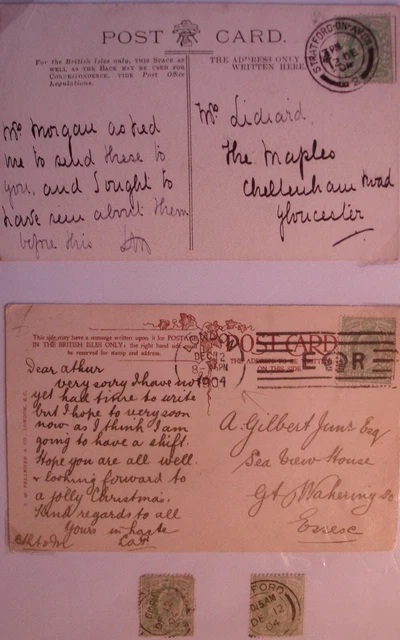 POST CARD.
For the British Isles only, this SPACE AS
WELL AS THE BACK MAY BE USED FOR
CORRESPONDENCE, VIDE Post Office
Regulations.
THE ADDRESS ONLY
WRITTEN HERE.
STRATFORD-ON-AVON
Mrs Morgan asked
me to send these to
you, and I ought to
have seen about them
before this
Mrs Lidiard,
The Maples
Cheltenham Road
Gloucester
This space may have a message written upon it for POSTAGE
IN THE BRITISH ISLES ONLY; the right hand side
be reserved for stamp and address.
POST CARD
THE ADDRESS
ON THIS SIDE
LONDON
DEC 12
8- PM
1904
E R
Dear Arthur
very sorry I have not
yet had time to write
but I hope to very soon
now as I think I am
going to have a shift.
Hope you are all well
& looking forward to
a jolly Christmas.
Kind regards to all
Yours in haste
A. Gilbert Junr Esq
Sea View House
Gt Wakering
Essex
FORD
15AM
DE 12
04